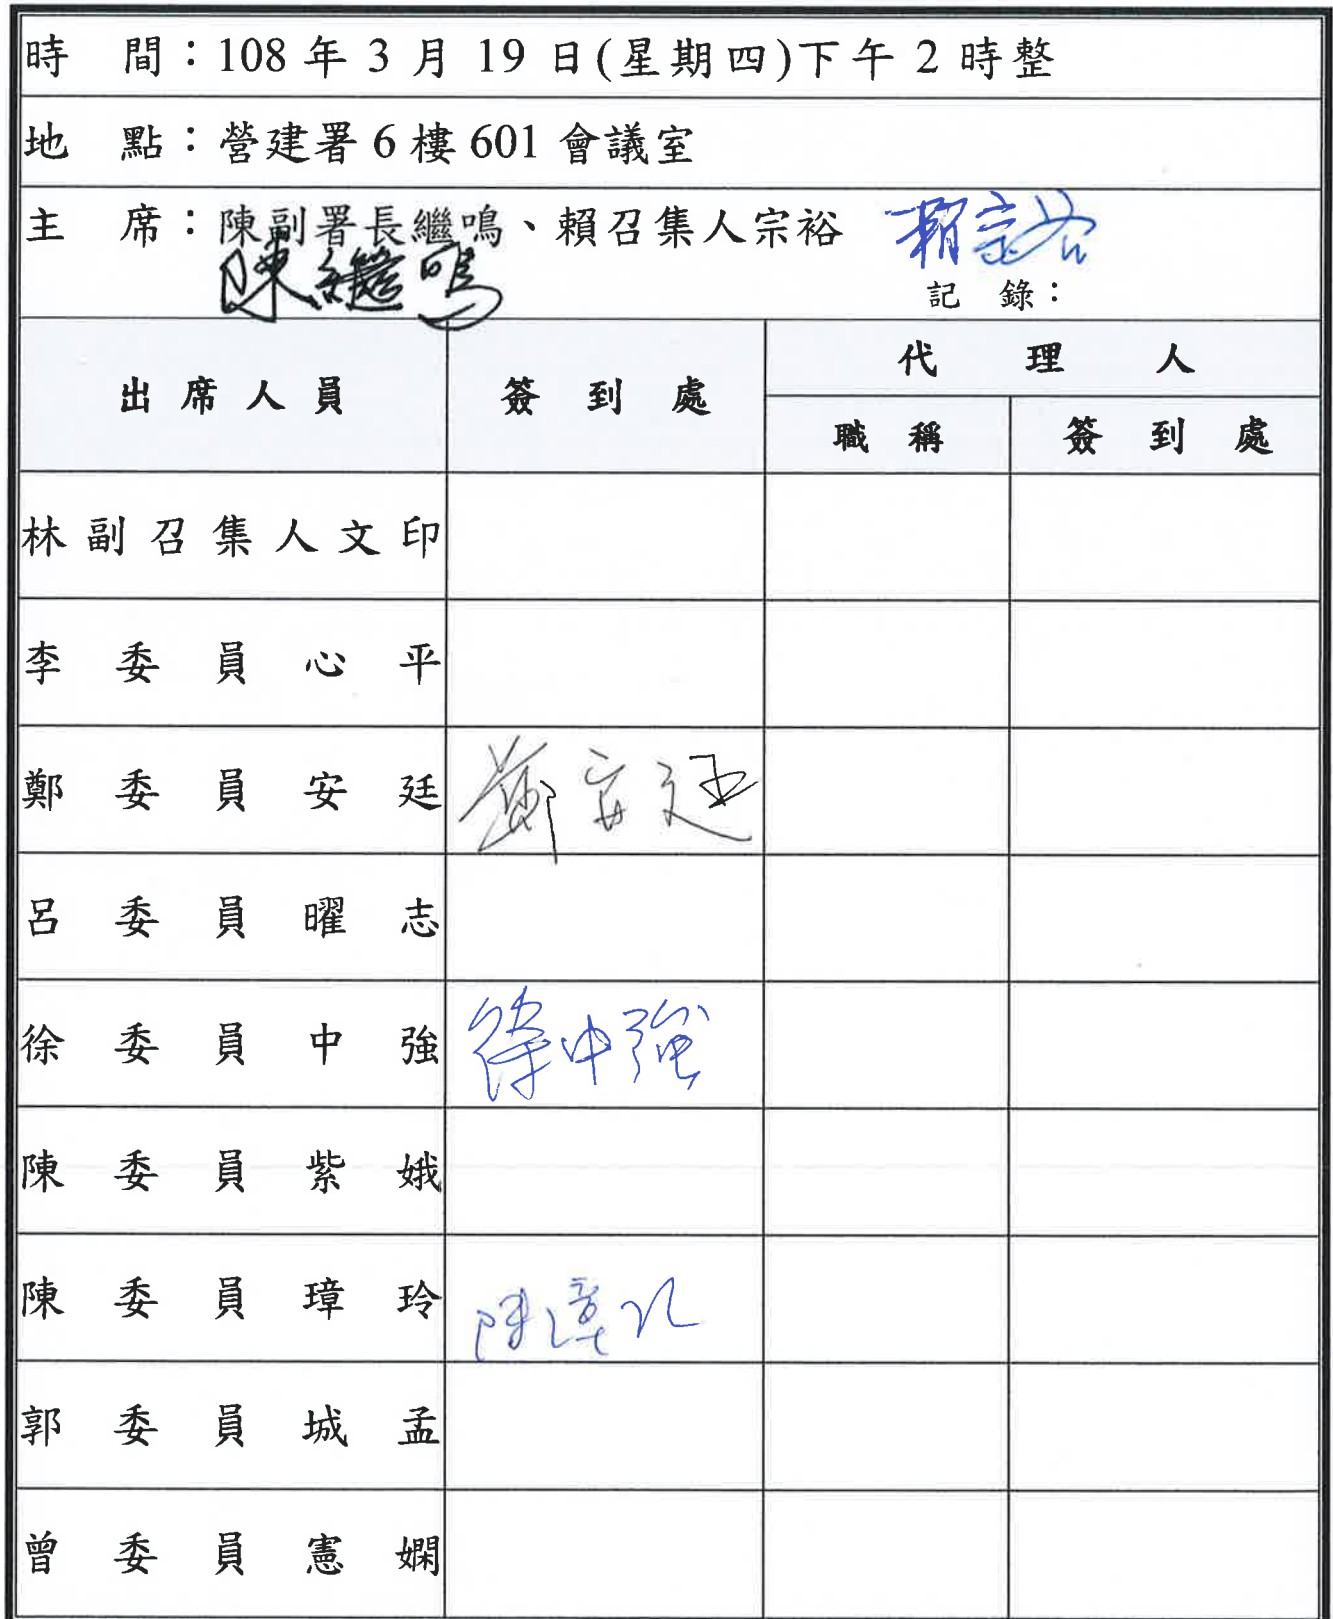 時 間：108 年 3 月 19 日(星期四)下午 2 時整
地 點：營建署 6 樓 601 會議室
主 席：陳副署長繼鳴、賴召集人宗裕 賴宗裕
陳繼鳴
記 錄：
出席人員 簽到處 代理人
職稱 簽到處
林副召集人文印
李委員心平
鄭委員安廷 鄭安廷
呂委員曜志
徐委員中強 徐中強
陳委員紫娥
陳委員璋玲 陳璋玲
郭委員城孟
曾委員憲嫻